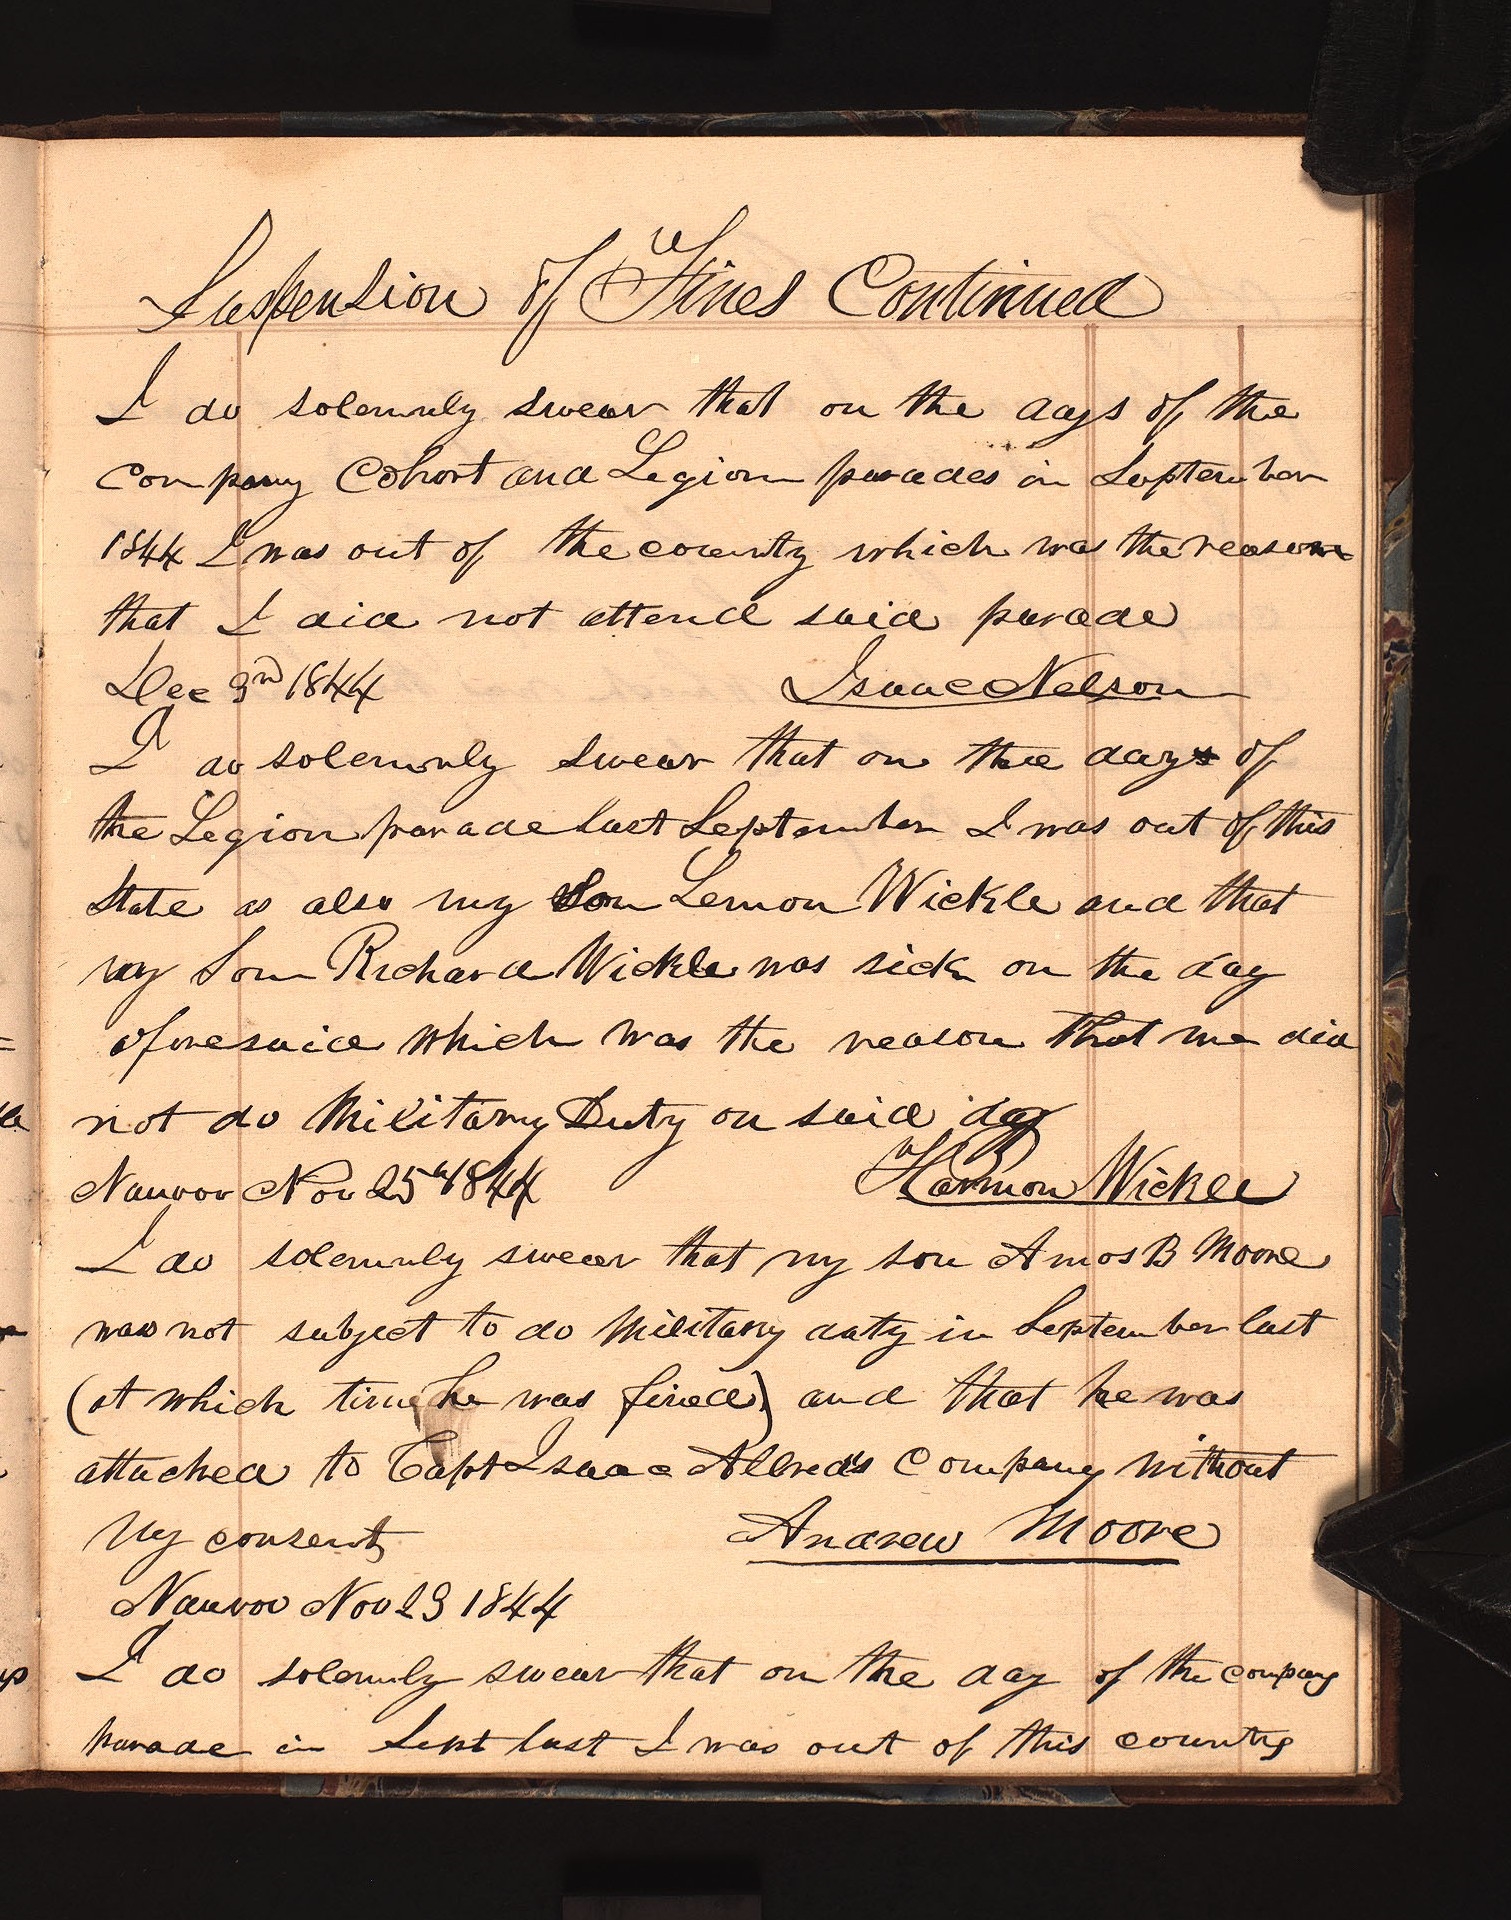 Suspension of Fines Continued
I do solemnly swear that on the days of the
company Cohort and Legion parades in September
1844 I was out of the county which was the reason
that I did not attend said parade
Dec 3rd 1844 Isaac Nelson
I do solemnly swear that on the day of
the Legion parade last September I was out of this
State as also my Son Lemon Wickle and that
my Son Richard Wickle was sick on the day
aforesaid which was the reason that we did
not do Military Duty on said day
Nauvoo Nov 25th 1844 Harmon Wickle
I do solemnly swear that my son Amos B Moore
was not subject to do Military duty in September last
(at which time he was fined) and that he was
attached to Capt Isaac Allred's Company without
My consent Andrew Moore
Nauvoo Nov 23 1844
I do solemnly swear that on the day of the company
parade in Sept last I was out of this county